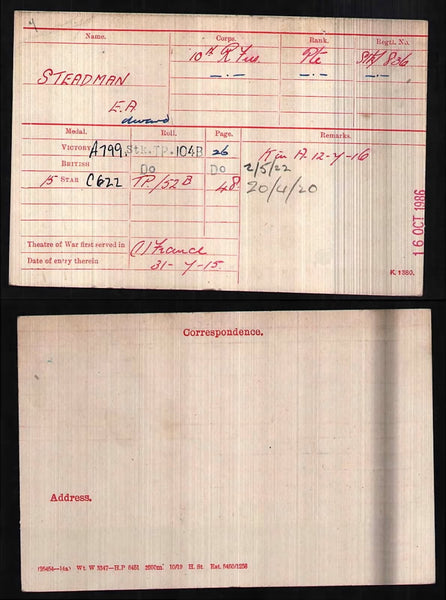 Name. Corps. Rank. Regtl. No.
10th R Fus Pte Stk/806
STEADMAN —·— —·— —·—
E.A
dward
Medal. Roll. Page. Remarks.
VICTORY A799. Stk.TP.104B 26 K in A. 12-7-16
BRITISH Do Do 2/5/22
15 STAR C622 TP/52B 48 20/4/20
16 OCT 1986
Theatre of War first served in (1) France
Date of entry therein 31-7-15.
K. 1380.
Correspondence.
Address.